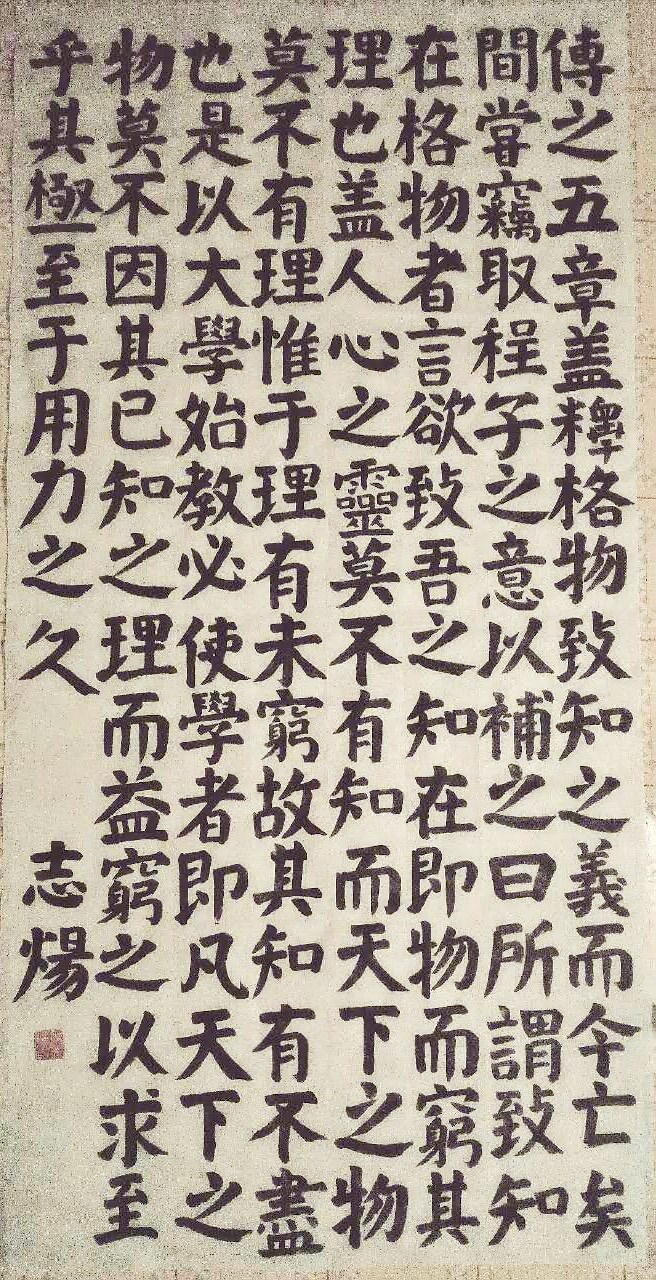 傳之五章盖釋格物致知之義而今亡矣
間甞竊取程子之意以補之曰所謂致知
在格物者言欲致吾之知在即物而窮其
理也盖人心之靈莫不有知而天下之物
莫不有理惟于理有未窮故其知有不盡
也是以大學始教必使學者即凡天下之
物莫不因其已知之理而益窮之以求至
乎其極至于用力之久
志煬